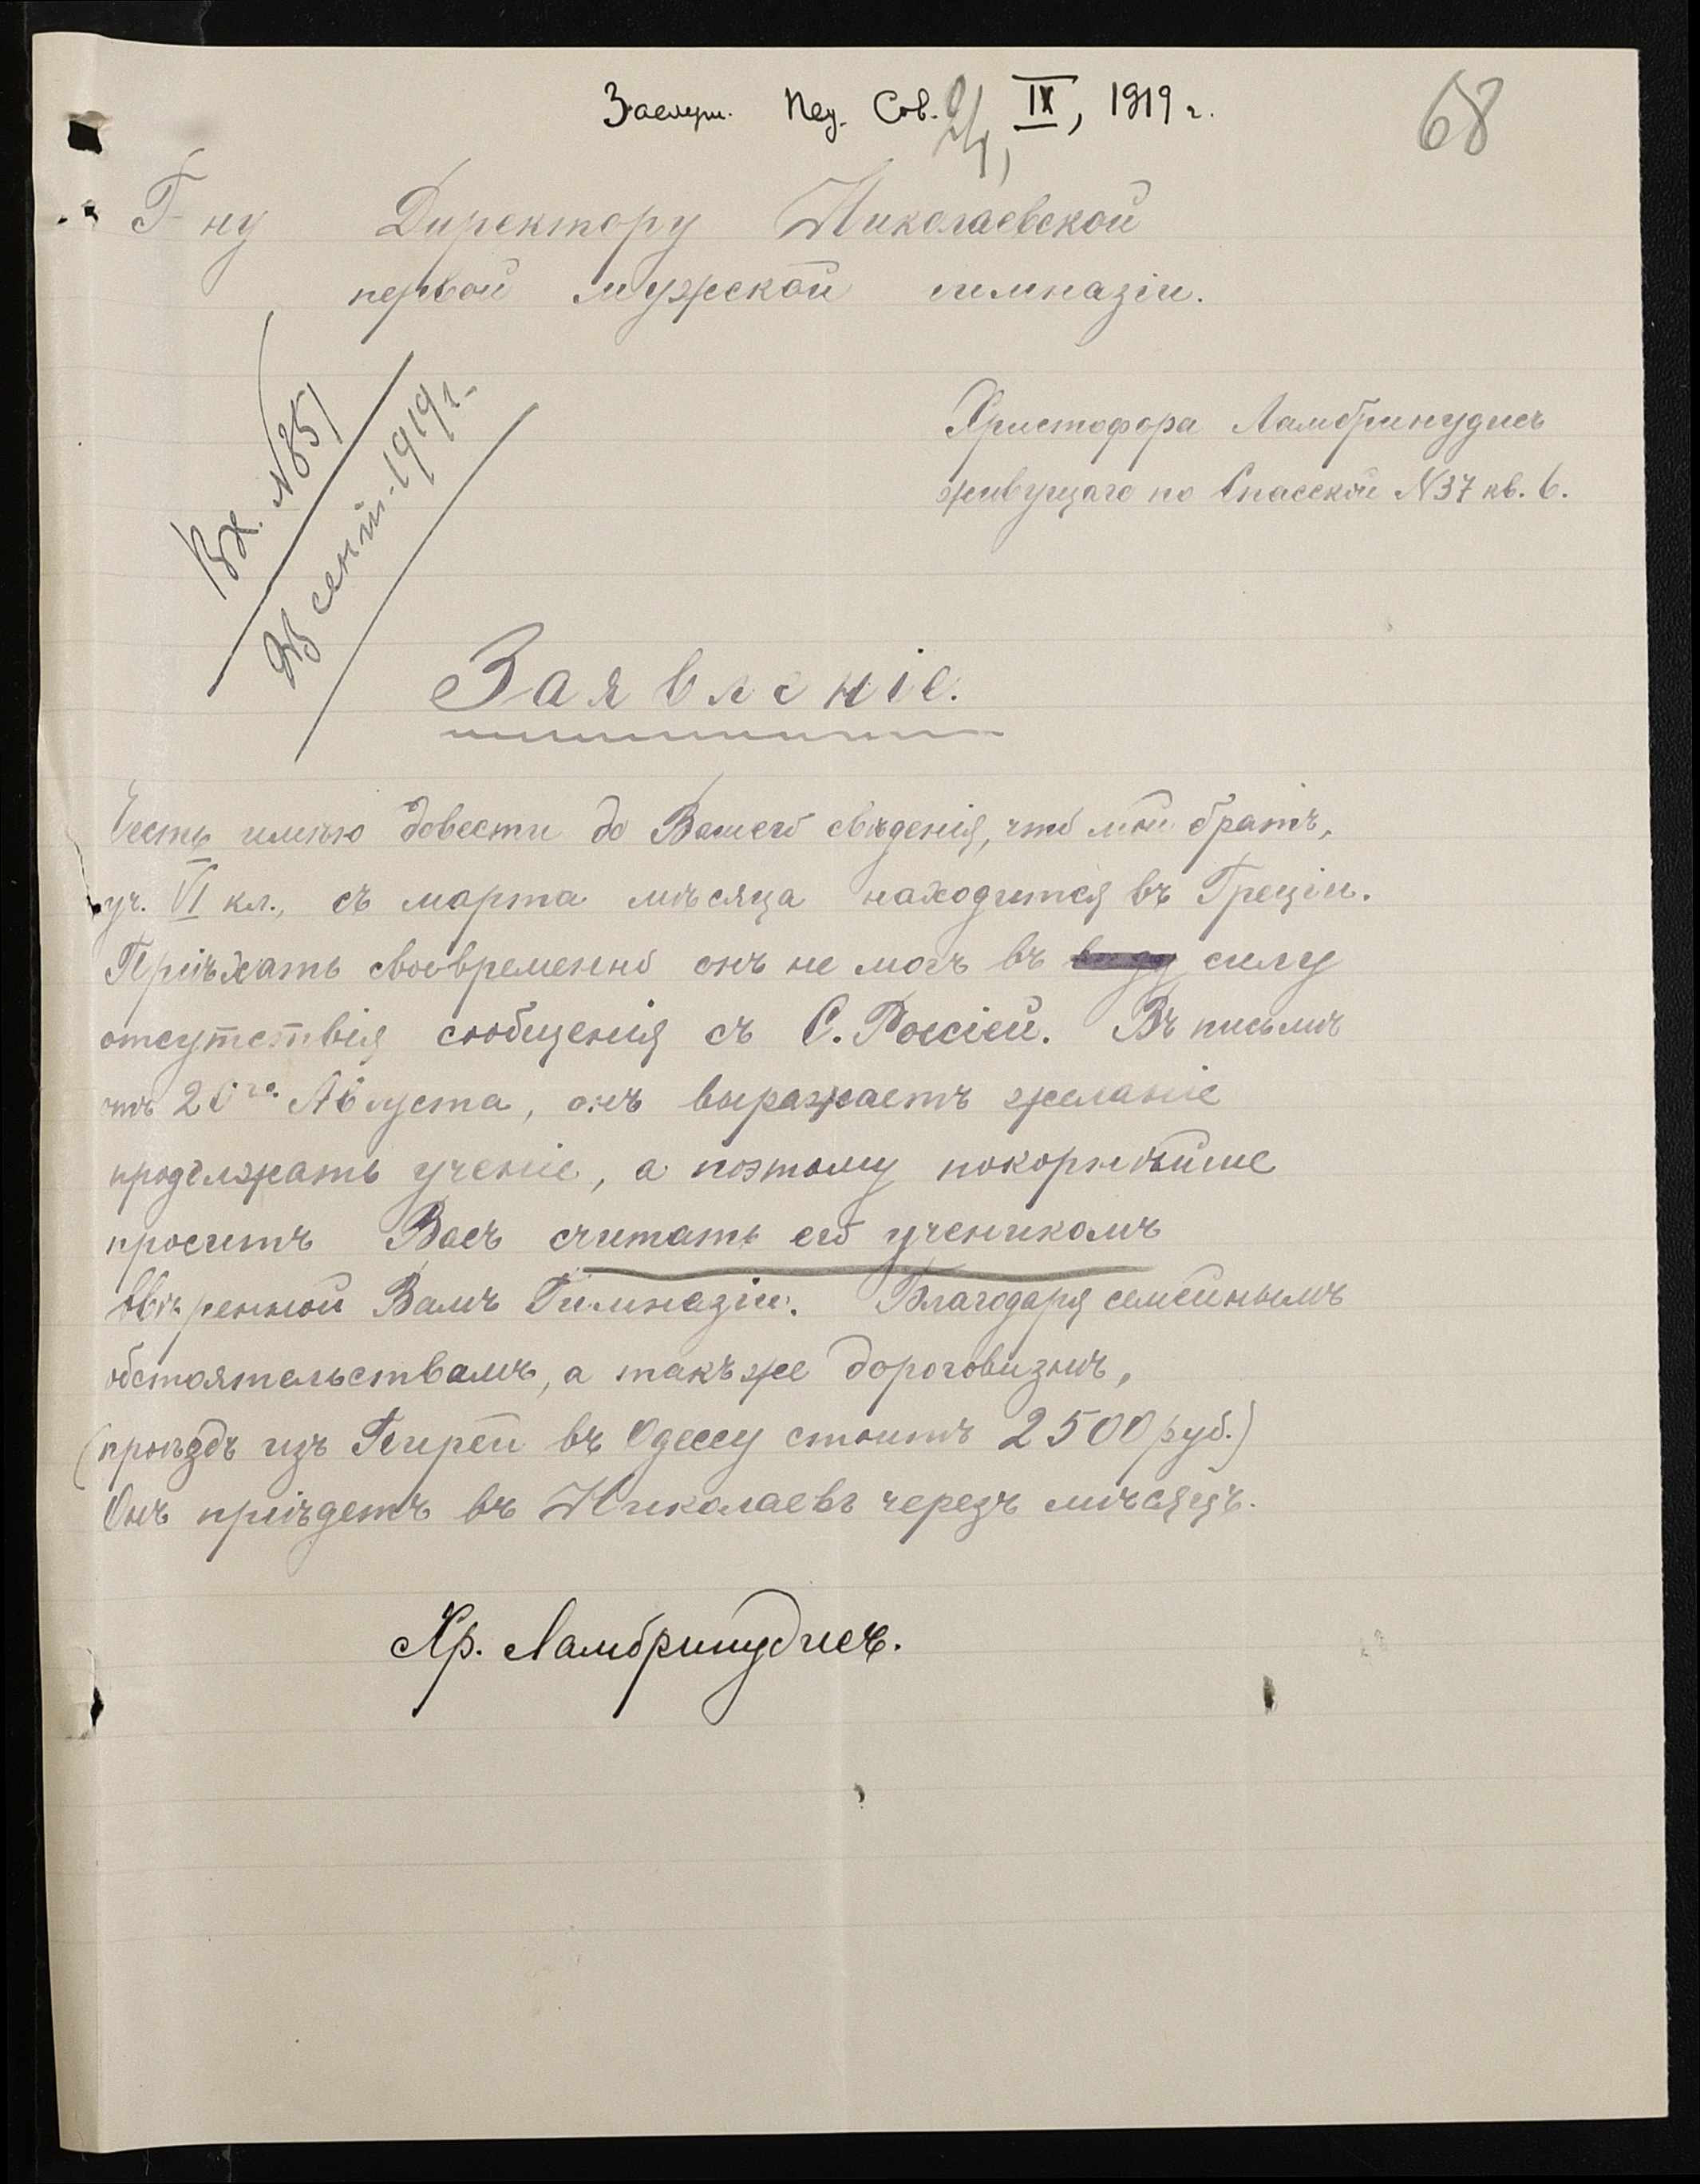 Заслуш. Пед. Сов. IX, 1919 г.
68
Г-ну Директору Николаевской
первой мужской гимназіи.
Вх. №851
сент. 1919 г.
Христофора Ламбринудисъ
живущаго по Спасской №37 кв. 6.
Заявленіе.
Честь имѣю довести до Вашего свѣденія, что мой братъ,
уч. VI кл., съ марта мѣсяца находится въ Греціи.
Пріѣхать своевременно онъ не могъ въ силу
отсутствія сообщенія съ С. Россіей. Въ письмѣ
отъ 20го Августа, онъ выражаетъ желаніе
продолжать ученіе, а поэтому покорнѣйше
проситъ Васъ считать его ученикомъ
ввѣренной Вамъ Гимназіи. Благодаря семейнымъ
обстоятельствамъ, а такъже дороговизнѣ,
(проѣздъ изъ Пирей въ Одессу стоитъ 2500 руб.)
Онъ пріѣдетъ въ Николаевъ черезъ мѣсяцъ.
Хр. Ламбринудисъ.